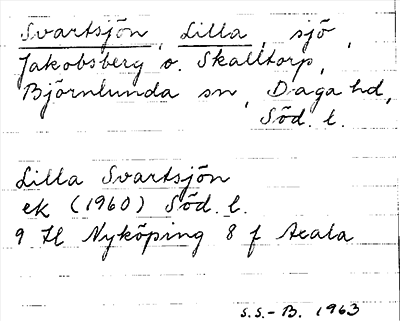 Svartsjön, Lilla, sjö,
Jakobsberg o. Skalltorp,
Björnlunda sn, Daga hd,
Söd. l.
Lilla Svartsjön
ek (1960) Söd. l.
9 H Nyköping 8 f Axala
S.S.-B. 1963